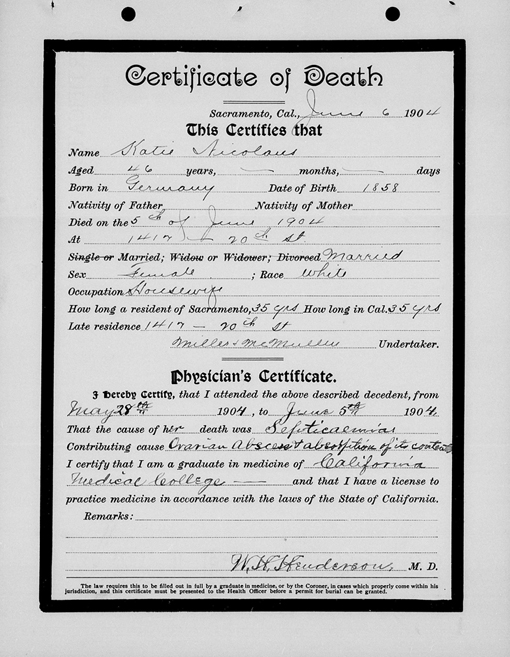 Certificate of Death
Sacramento, Cal., June 6 1904
This Certifies that
Name Katie Nicolaus
Aged 46 years, — months, — days
Born in Germany Date of Birth 1858
Nativity of Father Nativity of Mother
Died on the 5th of June 1904
At 1417 — 20th st.
Single or Married; Widow or Widower; Divorced Married
Sex Female ; Race White
Occupation Housewife
How long a resident of Sacramento, 35 yrs How long in Cal. 35 yrs
Late residence 1417 — 20th st
Miller & McMullen Undertaker.
Physician's Certificate.
I Hereby Certify, that I attended the above described decedent, from
May 28th 1904, to June 5th 1904.
That the cause of her death was Septicaemia
Contributing cause Ovarian Abscess & absorption of its contents
I certify that I am a graduate in medicine of California
Medical College — and that I have a license to
practice medicine in accordance with the laws of the State of California.
Remarks:
W. H. Henderson, M. D.
The law requires this to be filled out in full by a graduate in medicine, or by the Coroner, in cases which properly come within his
jurisdiction, and this certificate must be presented to the Health Officer before a permit for burial can be granted.